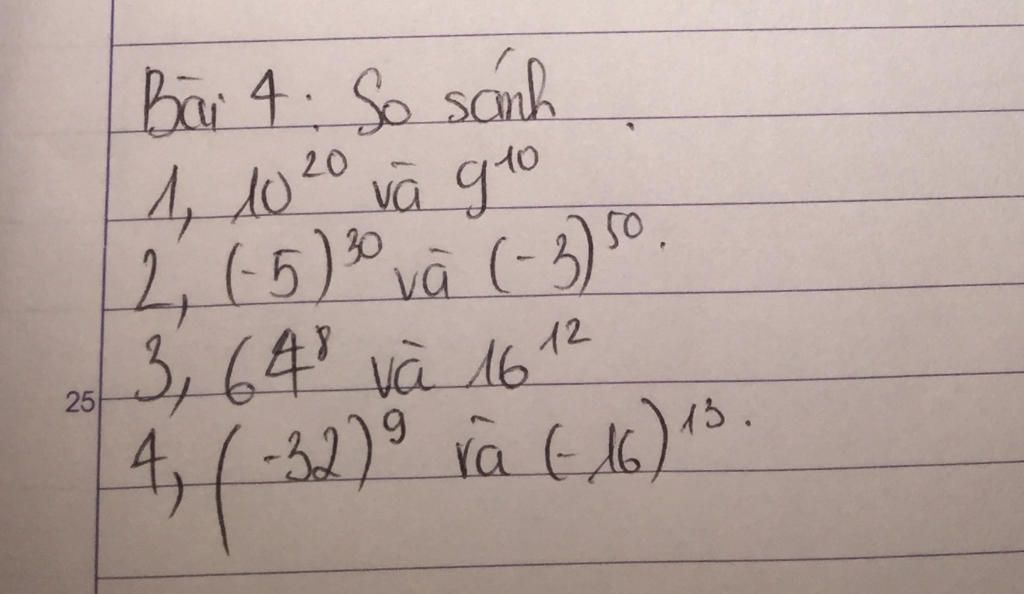 Bài 4: So sánh.
1, 10^20 và 9^10
2, (-5)^30 và (-3)^50.
3, 64^8 và 16^12
25
4, (-32)^9 và (-16)^13.